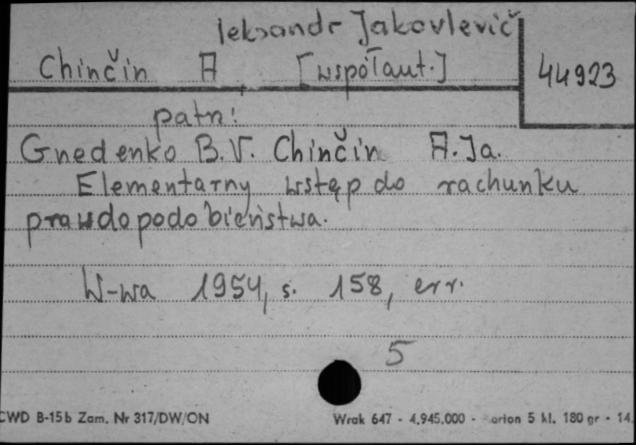 leksandr Jakovlevič
Chinčin A, [współaut.]
44923
patrz:
Gnedenko B.V. Chinčin A.Ja.
Elementarny wstęp do rachunku
prawdopodobieństwa.
W-wa 1954, s. 158, err.
5
CWD B-15b Zam. Nr 317/DW/ON
Wrak 647 - 4.945.000 - arton 5 kl. 180 gr - 14